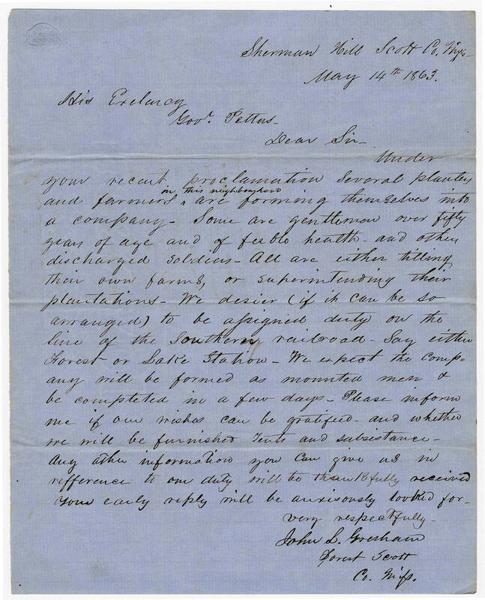 Sherman Hill Scott Co. Miss
May 14th 1863.
His Exelancy
Govr. Pettus
Dear Sir—
Under
your recent proclamation several planters
in this neighborhood
and farmers are forming themselves into
a company— Some are gentlemen over fifty
years of age and of feeble health and others
discharged soldiers— All are either tilling
their own farms, or superintending their
plantations— We desier (if it can be so
arranged) to be assigned duty on the
line of the Southern railroad— Say either
Forest or Lake Station— We expect the comp-
any will be formed as mounted men &
be completed in a few days— Please inform
me if our wishes can be gratified— and whether
we will be furnished Tents and subsistance—
Any other information you can give us in
refference to our duty will be thankfully received
Your early reply will be anxiously looked for—
very respectfully—
John L. Gresham
Forest Scott
Co. Miss.